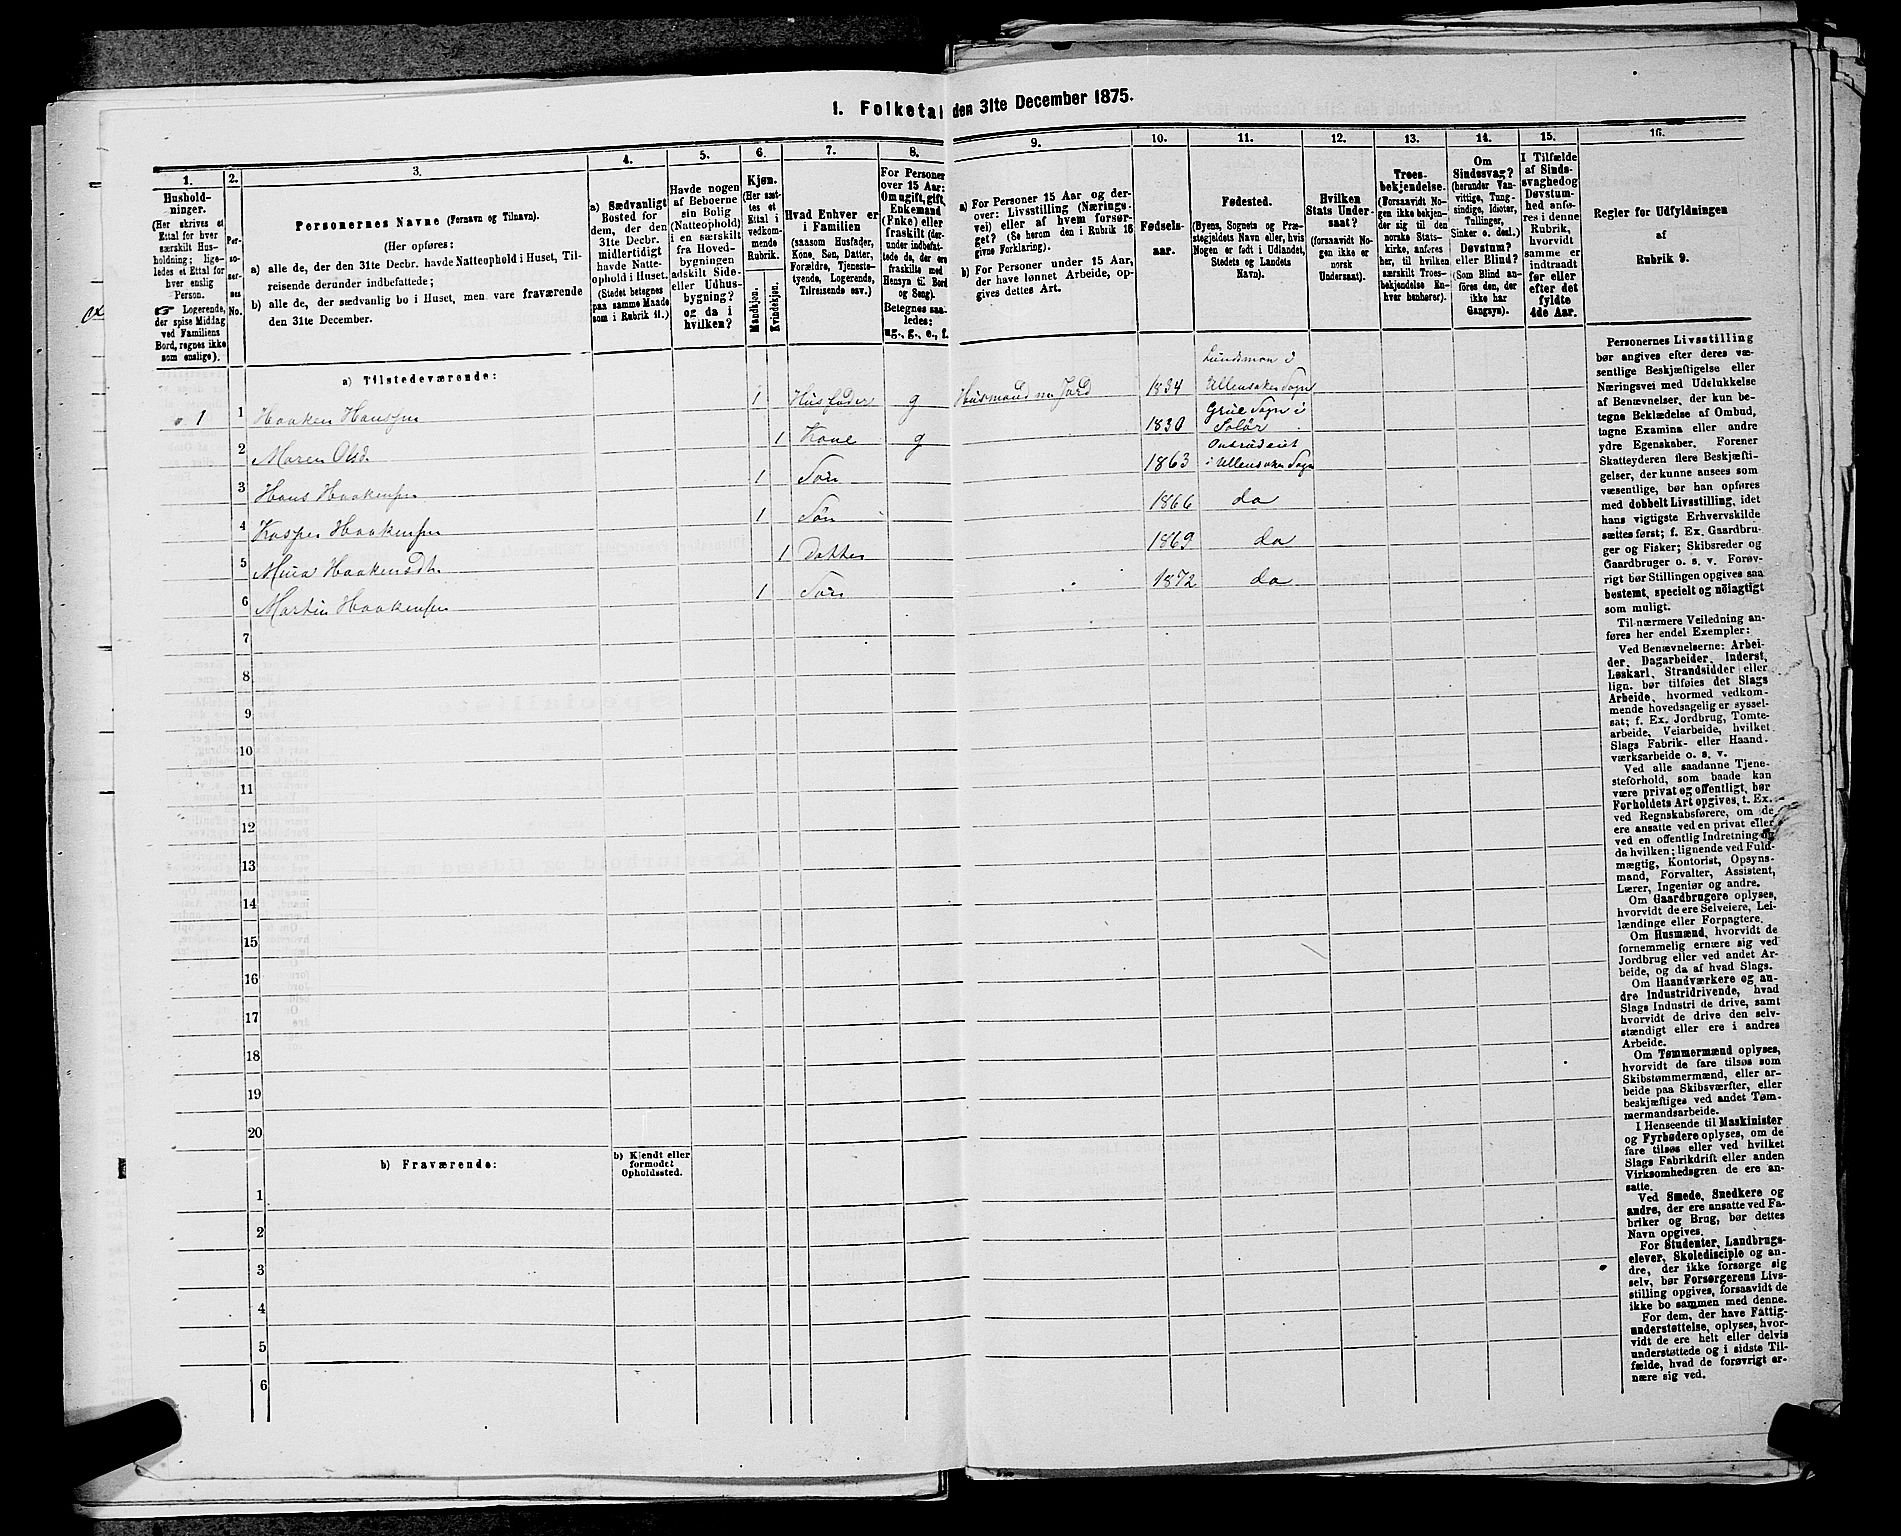 1. Folketal den 31te December 1875.
1.
2.
3.
4.
5.
6.
7.
8.
9.
10.
11.
12.
13.
14.
15.
16.
Hushold-
ninger.
(Her skrives et
Ettal for hver
særskilt Hus-
holdning; lige-
ledes et Ettal for
hver enslig
Person.
☞ Logerende,
der spise Middag
ved Familiens
Bord, regnes ikke
som enslige).
Per-
so-
ner-
nes
No.
Personernes Navne (Fornavn og Tilnavn).
(Her opføres:
a) alle de, der den 31te Decbr. havde Natteophold i Huset, Til-
reisende derunder indbefattede;
b) alle de, der sædvanlig bo i Huset, men vare fraværende
den 31te December.
a) Sædvanligt
Bosted for
dem, der den
31te Decbr.
midlertidigt
havde Natte-
ophold i Huset.
(Stedet betegnes
paa samme Maade
som i Rubrik 11.)
Havde nogen
af Beboerne
sin Bolig
(Natteophold)
i en særskilt
fra Hoved-
bygningen
adskilt Side-
eller Udhus-
bygning?
og da i
hvilken?
Kjøn.
(Her sæt-
tes et
Ettal i
vedkom-
mende
Rubrik.
Mandkjøn.
Kvindekjøn.
Hvad Enhver er
i Familien
(saasom Husfader,
Kone, Søn, Datter,
Forældre, Tjeneste-
tyende, Logerende,
Tilreisende osv.)
For Personer
over 15 Aar:
Om ugift, gift,
Enkemand
(Enke) eller
fraskilt (der-
under indbefat-
tede de, der ere
fraskilte med
Hensyn til Bord
og Seng).
Betegnes saa-
ledes:
ug., g., e., f.
a) For Personer 15 Aar og der-
over: Livsstilling (Nærings-
vei) eller af hvem forsør-
get? (Se herom den i Rubrik 16
givne Forklaring).
b) For Personer under 15 Aar,
der have lønnet Arbeide, op-
gives dettes Art.
Fødsels-
aar.
Fødested.
(Byens, Sognets og Præ-
stegjeldets Navn eller, hvis
Nogen er født i Udlandet,
Stedets og Landets
Navn).
Hvilken
Stats Under-
saat?
(forsaavidt No-
gen ikke er
norsk
Undersaat).
Troes-
bekjendelse.
(Forsaavidt No-
gen ikke bekjen-
der sig til den
norske Stats-
kirke, anføres
her, til hvilken
særskilt Troes-
bekjendelse En-
hver henhører).
Om
Sindssvag?
(herunder Van-
vittige, Tung-
sindige, Idioter,
Tullinger,
Sinker o. desl.)
Døvstum?
eller Blind?
(Som Blind an-
føres den, der
ikke har
Gangsyn).
I Tilfælde
af Sinds-
svaghed og
Døvstum-
hed anfø-
res i denne
Rubrik,
hvorvidt
samme er
indtraadt
før eller
efter det
fyldte
4de Aar.
Regler for Udfyldningen
af
Rubrik 9.
a) Tilstedeværende:
1 1 Haaken Hansen 1 Husfader g Husmand m Jord 1834 Lundsmon i Ullensaker Sogn
2 Maren Olsd. 1 Kone g 1830 Grue Sogn i Solør
3 Hans Haakensen 1 Søn 1863 i Ullensaker Sogn
4 Kasper Haakensen 1 Søn 1866 do
5 Mina Haakensdt. 1 Datter 1869 do
6 Martin Haakensen 1 Søn 1872 do
7
8
9
10
11
12
13
14
15
16
17
18
19
20
b) Fraværende:
b) Kjendt eller
formodet
Opholdssted.
1
2
3
4
5
6
Personernes Livsstilling
bør angives efter deres væ-
sentlige Beskjæftigelse eller
Næringsvei med Udelukkelse
af Benævnelser, der kun be-
tegne Beklædelse af Ombud,
tagne Examina eller andre
ydre Egenskaber. Forener
Skatteyderen flere Beskjæfti-
gelser, der kunne ansees som
væsentlige, bør han opføres
med dobbelt Livsstilling, idet
hans vigtigste Erhvervskilde
sættes først; f. Ex. Gaardbru-
ger og Fisker; Skibsreder og
Gaardbruger o. s. v. Forøv-
rigt bør Stillingen opgives saa
bestemt, specielt og nöiagtigt
som muligt.
Til nærmere Veiledning an-
føres her endel Exempler:
Ved Benævnelserne: Arbei-
der, Dagarbeider, Inderst,
Løskarl, Strandsidder eller
lign. bør tilføies det Slags
Arbeide, hvormed vedkom-
mende hovedsagelig er syssel-
sat; f. Ex. Jordbrug, Tomte-
arbeide, Veiarbeide, hvilket
Slags Fabrik- eller Haand-
værksarbeide o. s. v.
Ved alle saadanne Tjene-
steforhold, som baade kan
være privat og offentligt, bør
Forholdets Art opgives, t. Ex.
ved Regnskabsførere, om de
ere ansatte ved en privat eller
ved en offentlig Indretning og
da hvilken; lignende ved Fuld-
mægtig, Kontorist, Opsyns-
mand, Forvalter, Assistent,
Lærer, Ingeniør og andre.
Om Gaardbrugere oplyses,
hvorvidt de ere Selveiere, Lei-
lændinge eller Forpagtere.
Om Husmænd, hvorvidt de
fornemmelig ernære sig ved
Jordbrug eller ved andet Ar-
beide, og da af hvad Slags.
Om Haandværkere og an-
dre Industridrivende, hvad
Slags Industri de drive, samt
hvorvidt de drive den selv-
stændigt eller ere i andres
Arbeide.
Om Tømmermænd oplyses,
hvorvidt de fare tilsøs som
Skibstømmermænd, eller ar-
beide paa Skibsværfter, eller
beskjæftiges ved andet Tøm-
mermandsarbeide.
I Henseende til Maskinister
og Fyrbødere oplyses, om de
fare tilsøs eller ved hvilket
Slags Fabrikdrift eller anden
Virksomhedsgren de ere an-
satte.
Ved Smede, Snedkere og
andre, der ere ansatte ved Fa-
briker og Brug, bør dettes
Navn opgives.
For Studenter, Landbrugs-
elever, Skoledisciple og an-
dre, der ikke forsørge sig
selv, bør Forsørgerens Livs-
stilling opgives, forsaavidt de
ikke bo sammen med denne.
For dem, der have Fattig-
understøttelse, oplyses, hvor-
vidt de ere helt eller delvis
understøttede og i sidste Til-
fælde, hvad de forøvrigt er-
nære sig ved.